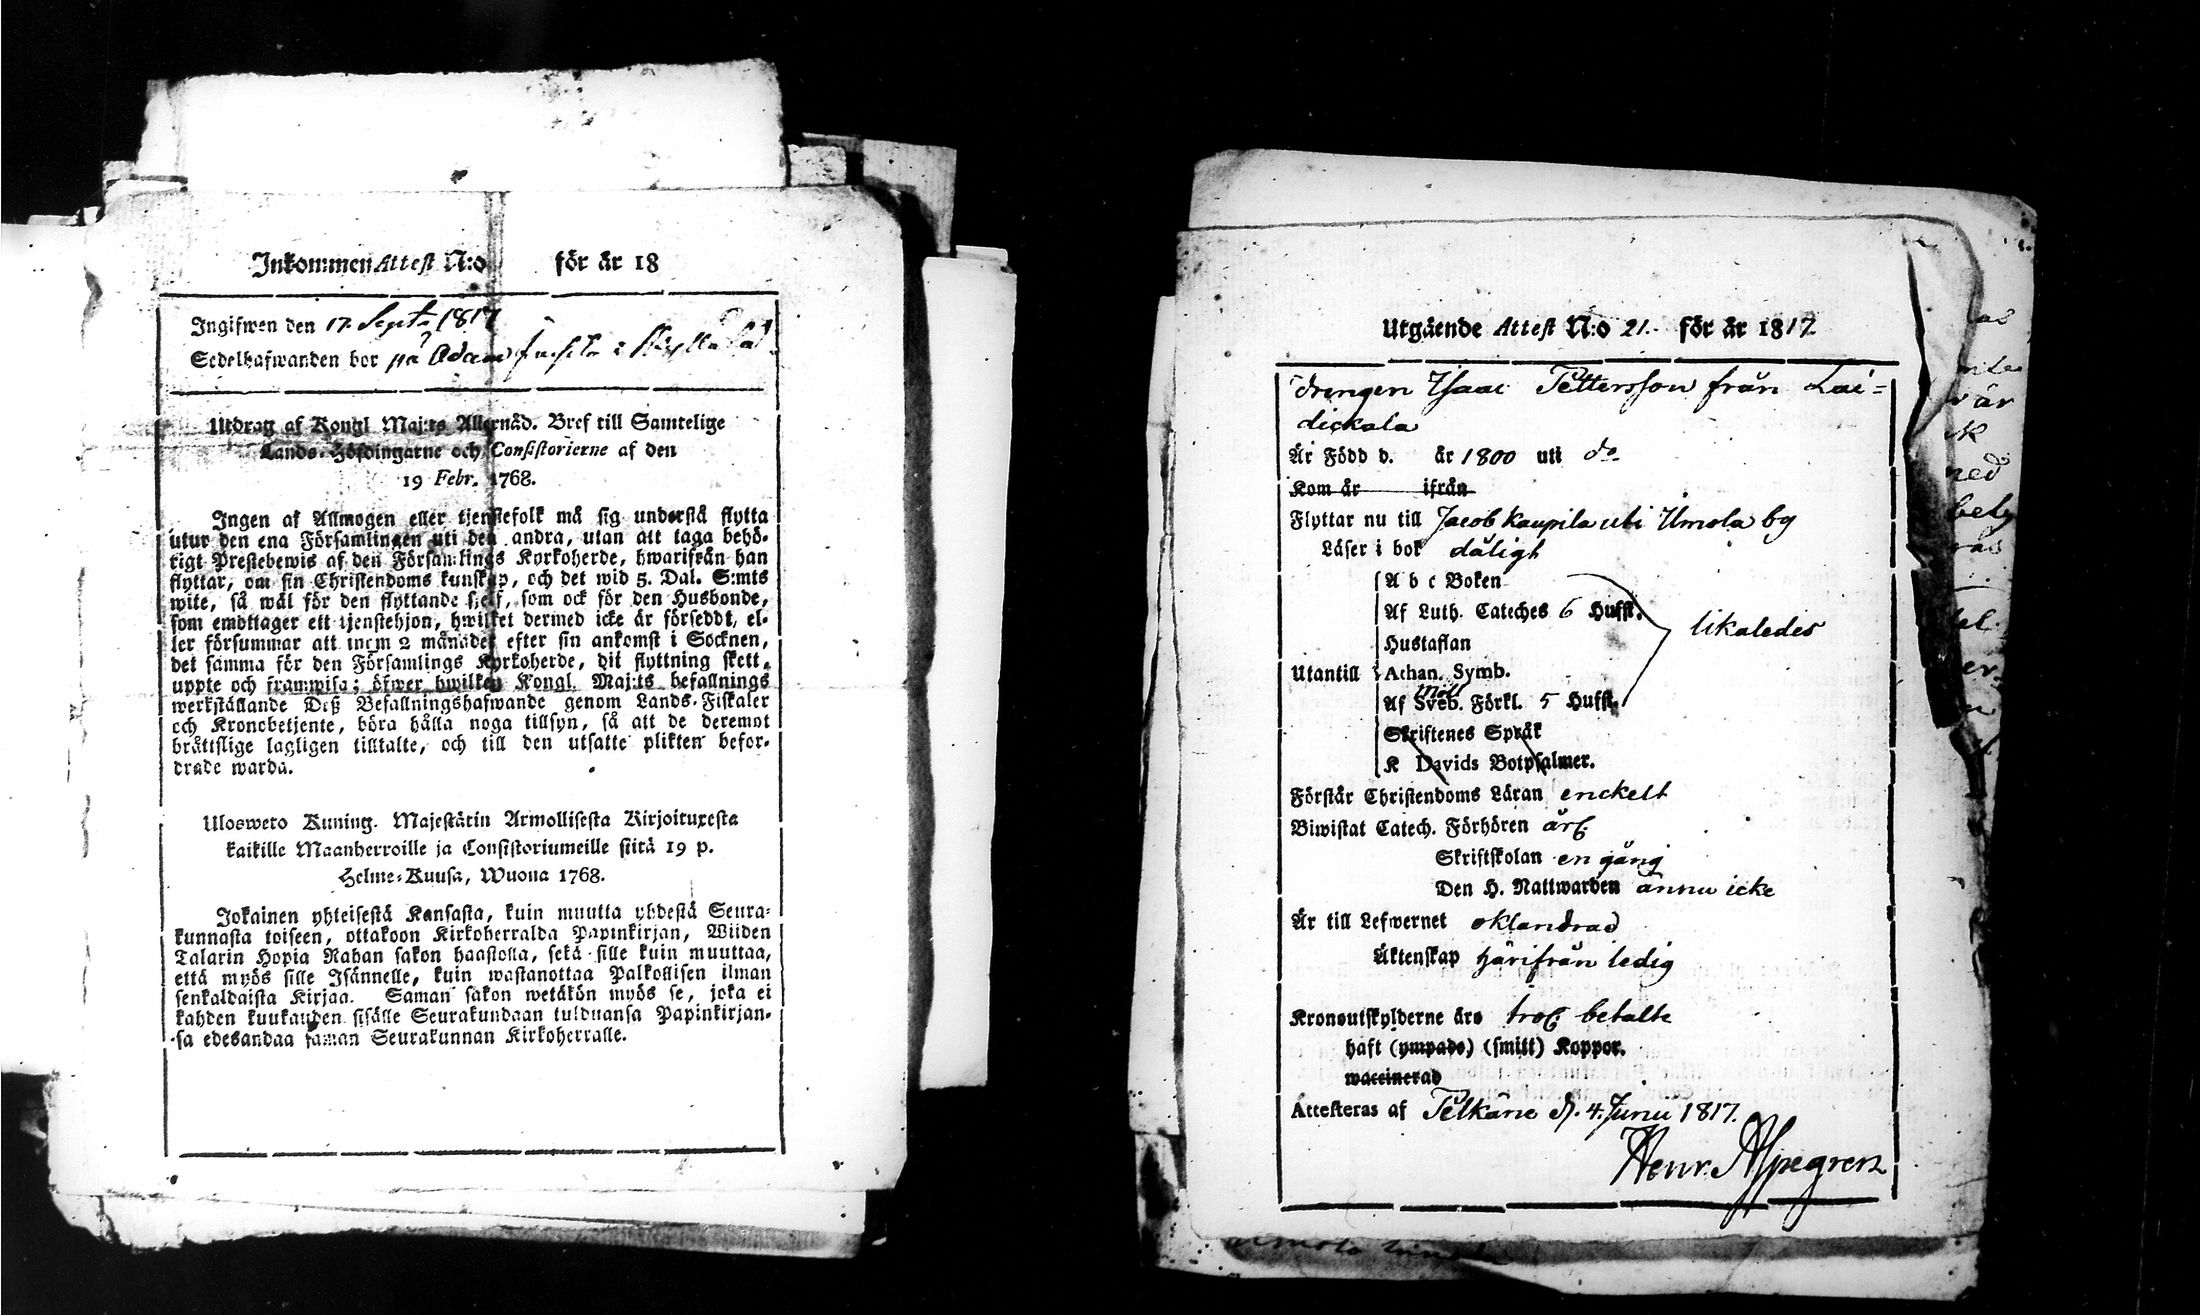 Inkommen Attest N:o för år 18
Ingifwen den 17. Sept. 1817
Sedelhafwanden bor på Adam i
Utdrag af Kongl Maj:ts Allernåd. Bref till Samtelige
Lands-Höfdingarne och Consistorierne af den
19 Febr. 1768.
Ingen af Allmogen eller tjenstefolk må sig understå flytta
utur den ena Församlingen uti den andra, utan att taga behö-
rigt Prestebewis af den Församlings Kyrkoherde, hwarifrån han
flyttar, om sin Christendoms kunskap, och det wid 5. Dal. S:mts
wite, så wäl för den flyttande sjelf, som ock för den Husbonde,
som emottager ett tjenstehjon, hwilket dermed icke är försedt, el-
ler försummar att inom 2 månader efter sin ankomst i Socknen,
det samma för den Församlings Kyrkoherde, dit flyttning skett,
uppte och framwisa; öfwer hwilken Kongl. Maj:ts befallnings
werkställande Deß Befallningshafwande genom Lands-Fiskaler
och Kronobetjente, böra hålla noga tillsyn, så att de deremot
bråttslige lagligen tilltalte, och till den utsatte plikten befor-
drade warda.
Ulosweto Kuning. Majestätin Armollisesta Kirjoituxesta
kaikille Maanherroille ja Consistoriumeille siitä 19 p.
Helme-Kuusa, Wuona 1768.
Jokainen yhteisestä Kansasta, kuin muutta yhdestä Seura-
kunnasta toiseen, ottakoon Kirkoherralda Papinkirjan, Wiiden
Talarin Hopia Rahan sakon haastolla, sekä sille kuin muuttaa,
että myös sille Isännelle, kuin wastanottaa Palkollisen ilman
senkaldaista Kirjaa. Saman sakon wetäkön myös se, joka ei
kahden kuukauden sisälle Seurakundaan tulduansa Papinkirjan-
sa edesandaa saman Seurakunnan Kirkoherralle.
Utgående Attest N:o 21. för år 1817
drengen Isaac Pettersson från Lai=
dickala
Är Född d. år 1800 uti do
Kom år ifrån
Flyttar nu till Jacob Kaupila uti Umola by
Läser i bok dåligt
A b c Boken
Af Luth. Cateches 6 Hufst.
likaledes
Hustaflan
Utantill Athan. Symb.
Moll
Af Sveb. Förkl. 5 Hufst.
Skriftenes Språk
K Davids Botpsalmer.
Förstår Christendoms Läran enckelt
Biwistat Catech. Förhören årl.
Skriftskolan en gång
Den H. Nattwarden ännu icke
Är till Lefwernet oklandrad
Äktenskap härifrån ledig
Kronoutskylderne äro trol. betalte
haft (ympade) (smitt) Koppor.
waccinerad
Attesteras af Pelkäne d. 4. Junii 1817.
Henr. Alpegren